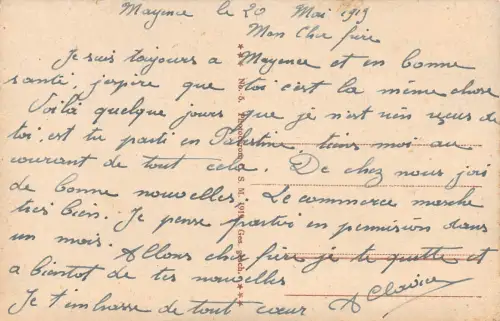 Mayence le 20 Mai 1919
Mon Cher frère
Je suis toujours a Mayence et en bonne
santé, j'espire que toi c'est la même chose
Voilà quelque jours que je n'est rien reçus de
toi, est tu parti en Palestine, tiens moi au
courant de tout cela. De chez nous j'ai
de bonne nouvelles. Le commerce marche
tres bien. Je pense partir en permission dans
un mois. Allons cher frère je te quitte et
a bientot de tes nouvelles
Je t'embrasse de tout cœur A